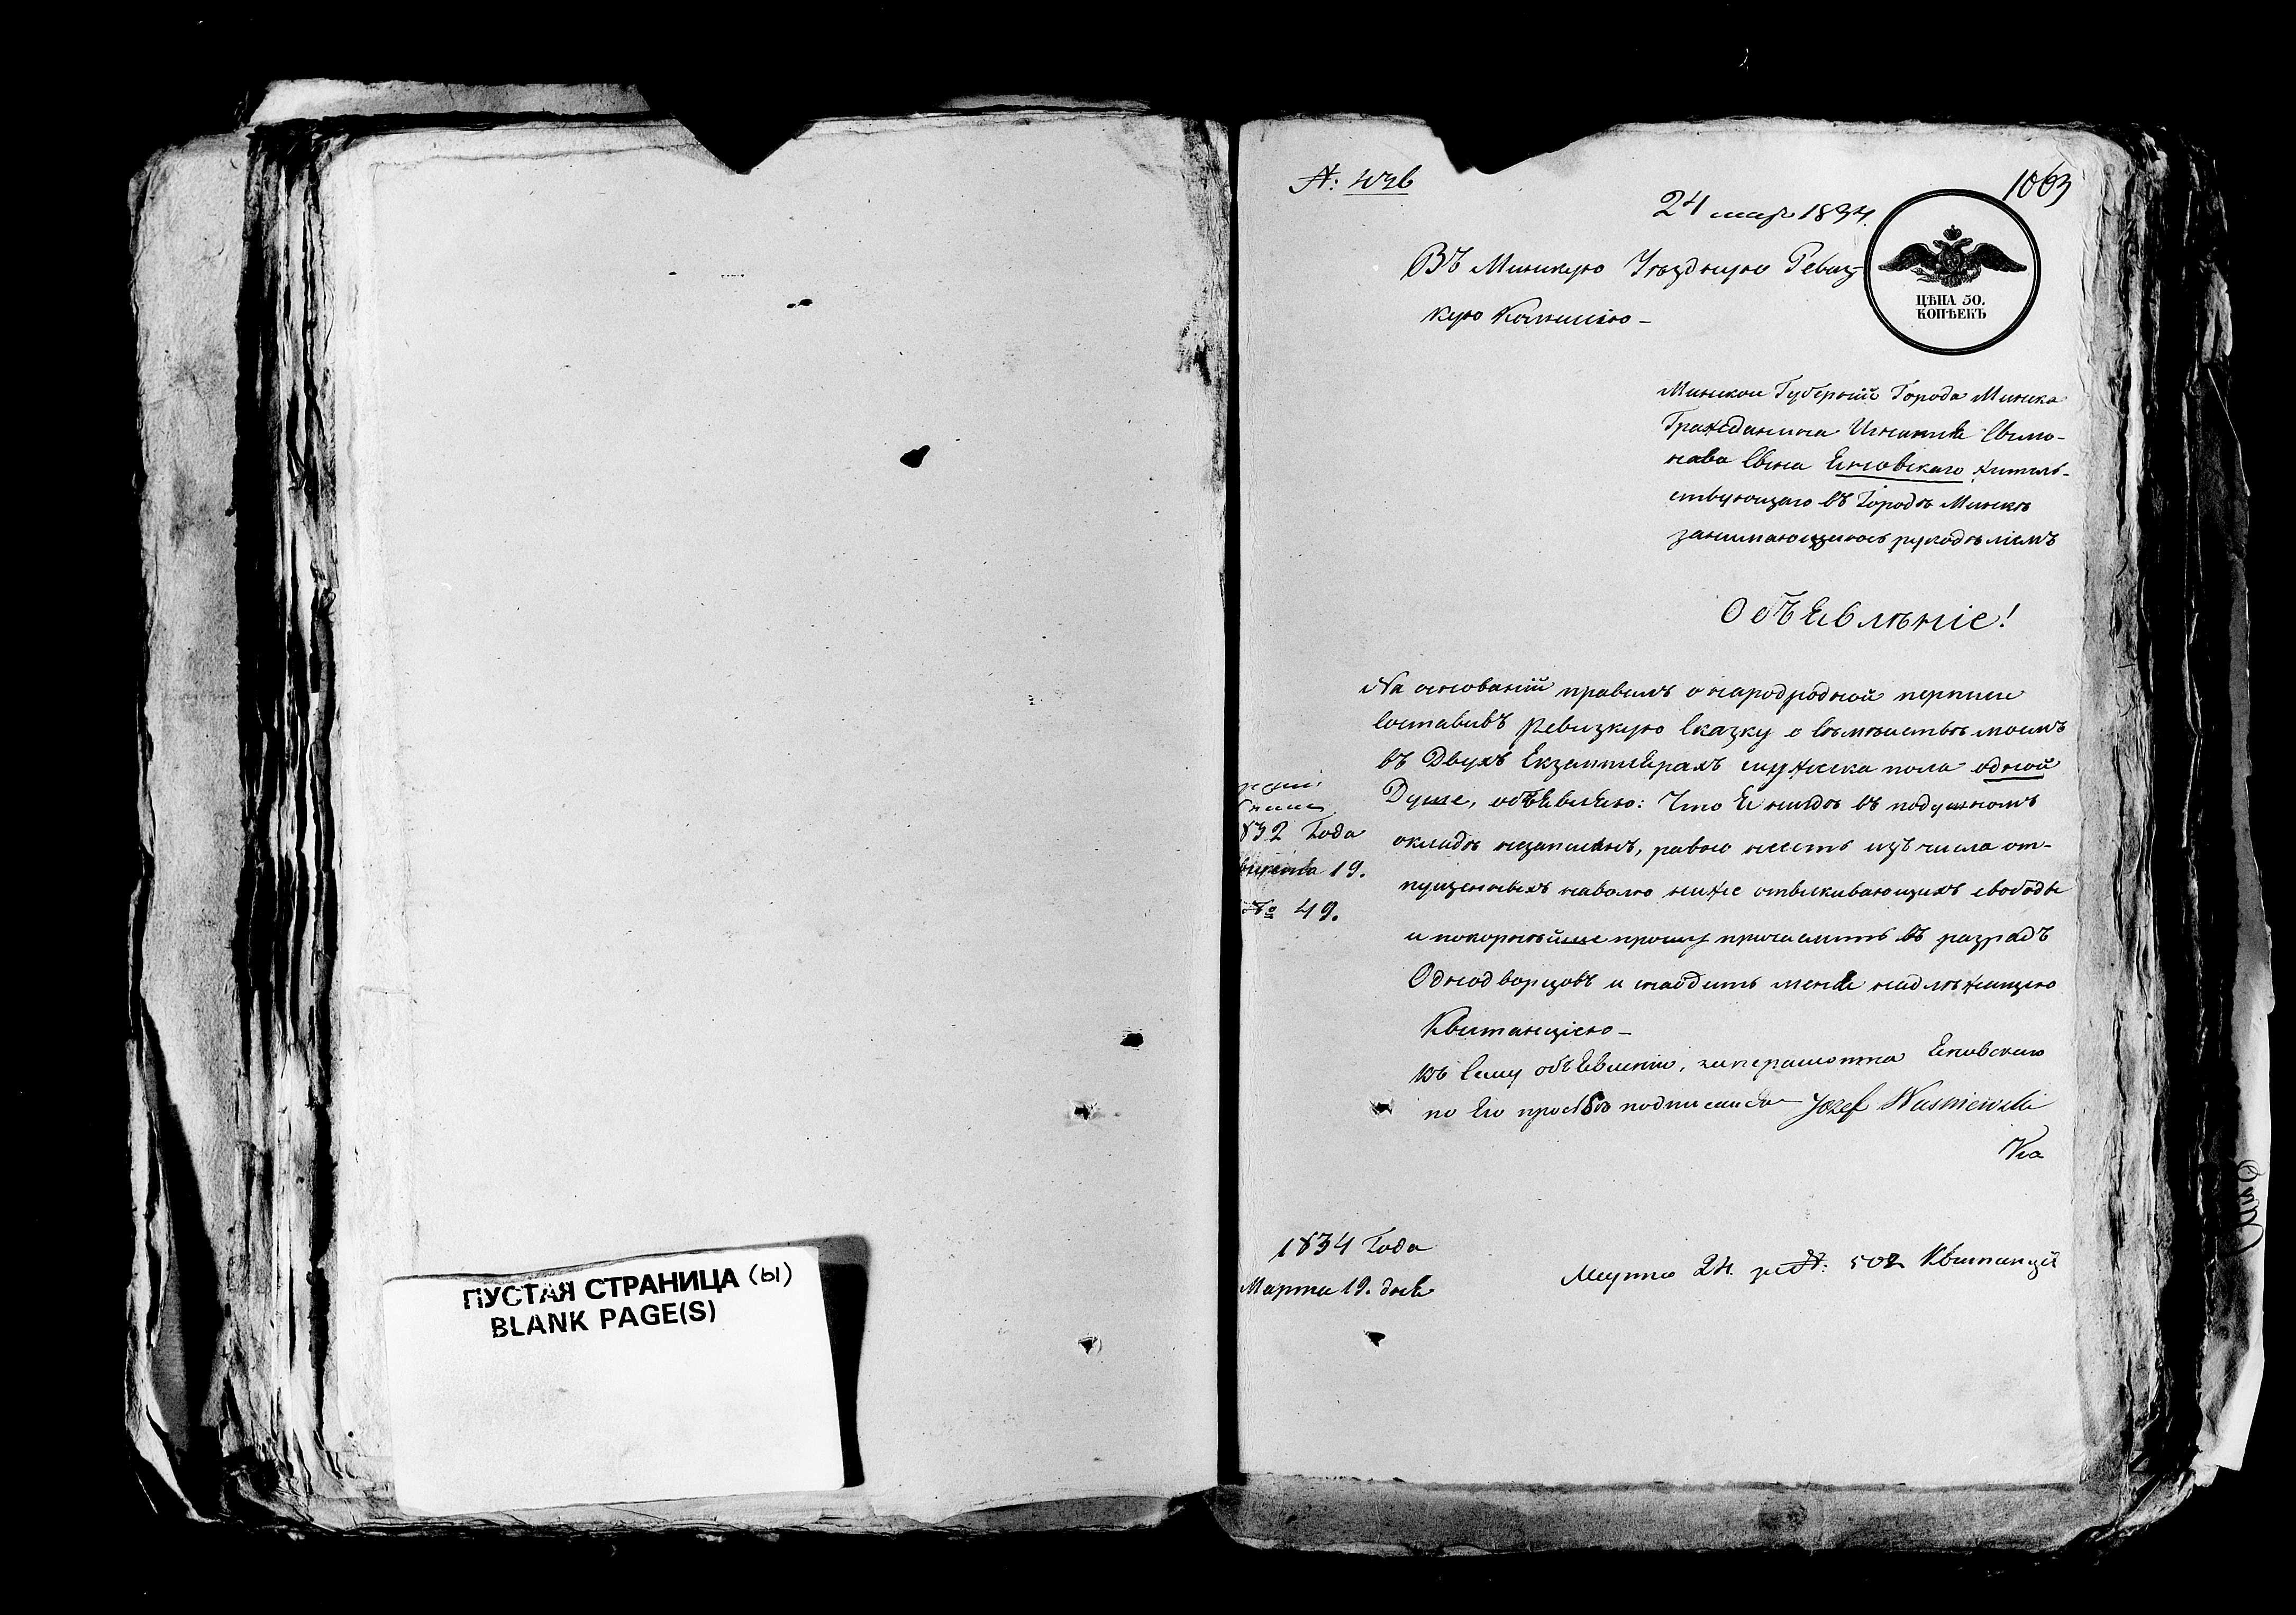 ПУСТАЯ СТРАНИЦА (ы)
BLANK PAGE(S)
1063
24 мар. 1834.
ЦѢНА 50.
КОПѢЕКЪ
Въ Минскую Уѣздную Ревиз-
кую Комисію –
Минской Губерніи Города Минска
Гражданина Игнатия Сымо-
нава Сына Яновскаго житель-
ствующаго въ Городѣ Минскѣ
занимающагось рукодѣліемъ
Объявлѣніе!
На основаніи правилъ о народродной перписи
Составивъ Ревизкую Сказку о Сѣмѣйствѣ моемъ
въ Двухъ Екземплярахъ мужеска пола одной
Душе, объявляю: Что Я нигдѣ въ подушномъ
окладѣ незаписанъ, равно несть изъ числа от-
пущеныхъ наволю ниже отыскивающихъ свободы
и покорнѣйше прошу причислить въ разрадъ
Однодворцовъ и снабдить меня надлѣжащею
Квитанціею –
832 Года
19.
№ 49.
Къ Сему объявлению, Яновскаго
по Его прозбѣ подписался Jozef Wasniewski
1834 Года
Марта 19. дня
24. 502 Квитанція